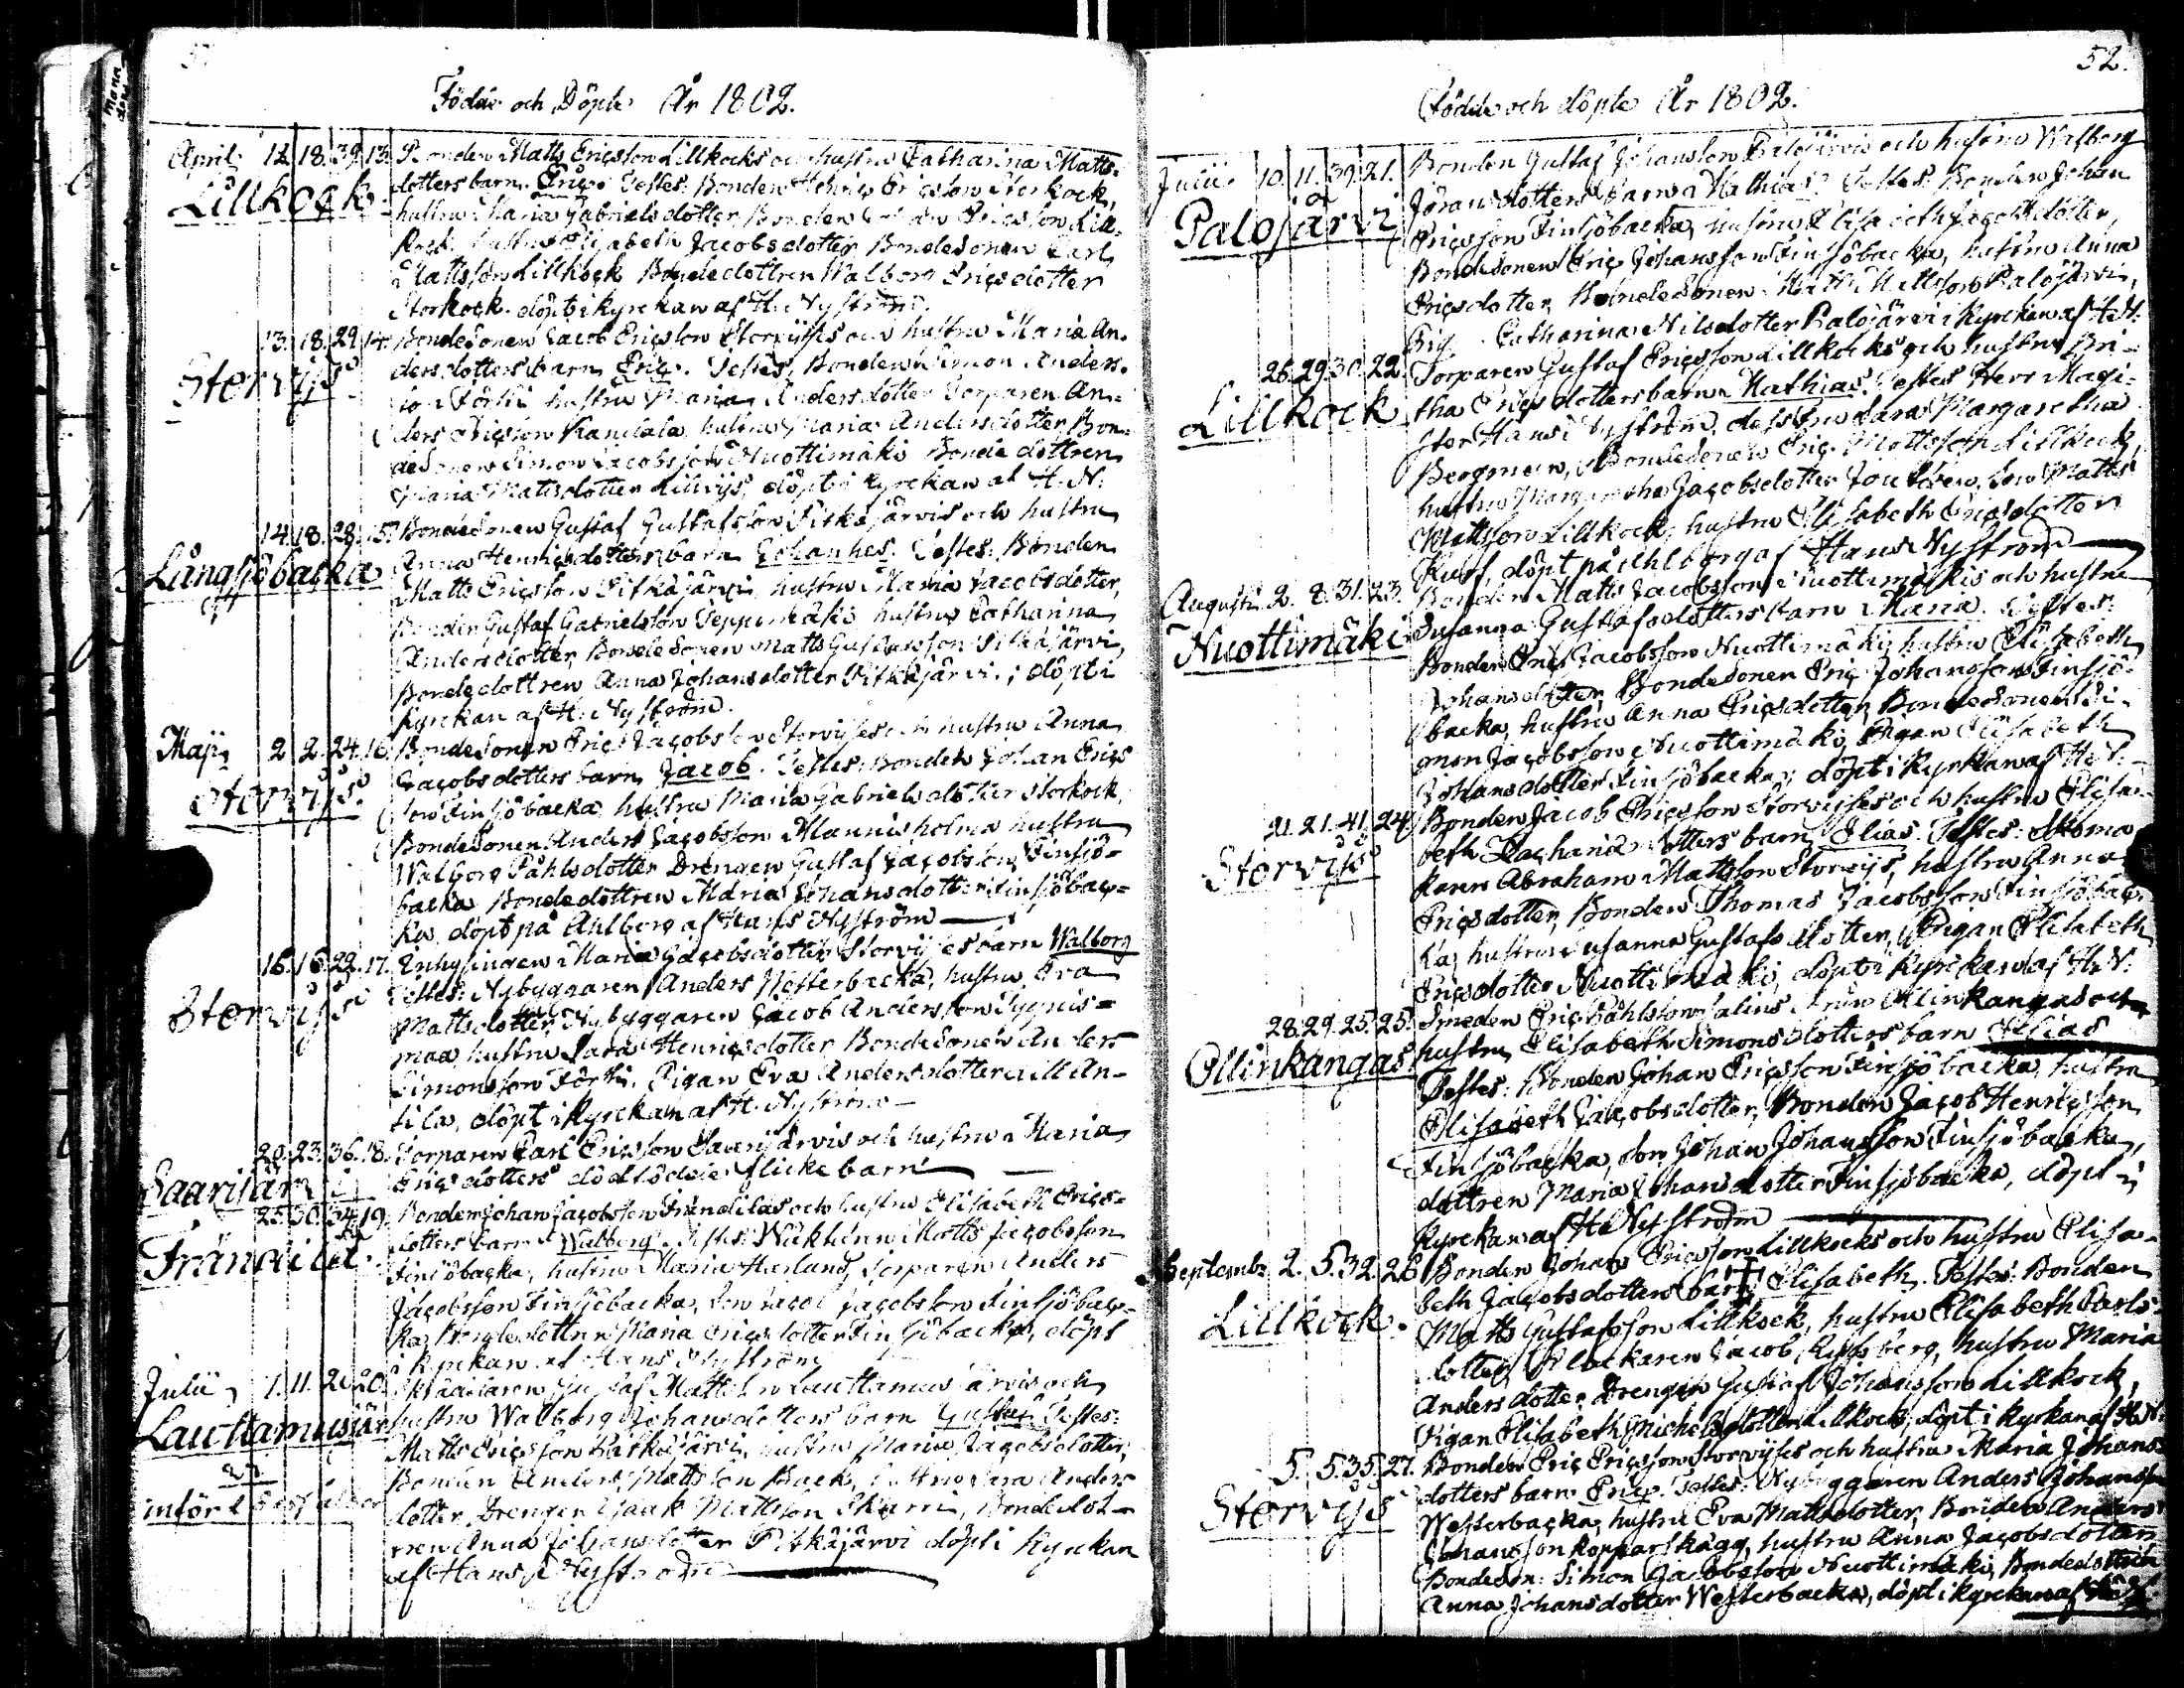 Födde och Döpte År 1802.
April 12. 18. 39. 13. Bonden Matts Ericsson Lillkocks och hustru Catharina Matts-
Lillkock dotters barn Eric. Testes: Bonden Henric Ericsson Storkock,
hustru Maria Gabrielsdotter, Bonden Ericsson Lill-
kock, hustru Elisabeth Jacobsdotter, Bondesonen Carl
Mattsson Lillkock Bondedottren Walborg Ericsdotter
Storkock. döpt i kyrckan af H. Nyström.
13. 18. 29. 14. Bondesonen Jacob Ericsson Storvijses och hustru Maria An-
Storvijs dersdotters barn Eric. Testes, Bonden Simon Anders-
son Förti hustru Maria Andersdotter Torparen An-
ders Ericsson Kandala, hustru Maria Andersdotter, Bon-
desonen Simon Jacobsson Nuottimäki Bondedottren
Maria Mattsdotter Lillvijs, döpt i kyrckan af H. N:
14. 18. 28. 15. Bondesonen Gustaf Gustafsson Pitkäjärvis och hustru
Långsjöbacka Anna Henricsdotters barn Johannes. Testes: Bonden
Matts Ericsson Pitkäjärvi, hustru Maria Jacobsdotter,
Bonden Gustaf Gabrielsson Seppenmäki hustru Catharina
Andersdotter, Bondesonen Matts Gustafsson Pitkäjärvi,
Bondedottren Anna Johansdotter Pitkäjärvi; döpt i
kyrckan af H. Nyström.
Maji 2. 2. 24. 16. Bondesonen Eric Jacobsson Storvijses och hustru Anna
Storvijs Jacobsdotters barn Jacob. Testes: Bonden Johan Erics-
son Finsjöbacka, hustru Maria Gabrielsdotter Storkock,
Bondesonen Anders Jacobsson Mannisholma hustru
Walborg Påhlsdotter Drengen Gustaf Jacobsson Finsjö-
backa Bondedottren Maria Johansdotter Finsjöbac-
ka, döpt på Ahlborg af Hans Nyström
16. 16. 22. 17. Inhysingen Maria Jacobsdotter Storvijses barn Walborg
Storvijs Testes: Nybyggaren Anders Westerbacka, hustru Eva
Mattsdotter, Nybyggaren Jacob Andersson
maa, hustru Sara Henricsdotter Bondesonen Anders
Simonsson Förti, Pigan Eva Andersdotter An-
tila, döpt i kyrckan af H. Nyström
20. 23. 36. 18. Torparen Carl Ericsson Saarijärvis och hustru Maria
Saarijärvi Ericsdotters dödfödde flicke barn
25. 30. 34. 19. Bonden Johan Jacobsson Frändilas och hustru Elisabeth Erics-
Frändila dotters barn Walborg. Testes: Matts Jacobsson
Finsjöbacka, hustru Maria Harlund, Torparen Anders
Jacobsson Finsjöbacka, Jacobsson Finsjöbac-
ka, Bondedottren Maria Ericsdotter Finsjöbacka, döpt
i kyrckan af Hans Nyström
Julii 1. 11. 20. 20. Gustaf Mattsson Lauttamusjärvis och
Lauttamusjär hustru Walborg Johansdotters barn Gustaf. Testes:
Matts Ericsson Pitkäjärvi, hustru Maria Jacobsdotter,
Bonden Anders Mattsson Back, hustru Anders-
dotter, Drengen Isaak Mattsson Skurri, Bondedot-
införd
tren Anna Johansdotter Pitkäjärvi döpt i kyrckan
af Hans Nyström
52.
Födde och döpte År 1802.
Julii 10. 11. 39. 21. Bonden Gustaf Johansson Palojärvis och hustru Walborg
Palojärvi Jöransdotters barn Mathias. Testes: Bonden Johan
Ericsson Finsjöbacka, hustru Elisabeth Jacobsdotter,
Bondesonen Eric Johansson Finsjöbacka, hustru Anna
Ericsdotter, Bondesonen Mattsson Palojärvi,
Catharina Nilsdotter Palojärvi i kyrckan af H. N:
26. 29. 30. 22. Torparen Gustaf Ericsson Lillkocks och hustru Bri-
Lillkock tha Ericsdotters barn Mathias. Testes Herr Magi-
ster Hans Nyström, dess fru Sara Margaretha
Bergman, Bondesonen Eric Mattsson Lillkock,
hustru Margaretha Jacobsdotter Matts
Mattsson Lillkock, hustru Elisabeth Ericsdotter
döpt på Ahlborg af Hans Nyström
Augusti 2. 8. 31. 23. Bonden Matts Jacobsson Nuottimäkis och hustru
Nuottimäki Susanna Gustafsdotters barn Maria. Testes:
Bonden Eric Jacobsson Nuottimäki, hustru Elisabeth
Johansdotter, Bondesonen Eric Johansson Finsjö-
backa, hustru Anna Ericsdotter, Bondesonen Si-
mon Jacobsson Nuottimäki, Pigan Elisabeth
Johansdotter Finsjöbacka; döpt i kyrkan af H. N:
21. 21. 41. 24. Bonden Jacob Ericsson Storvijses och hustru Elisa-
Storvijs beth Zachariædotters barn Elias. Testes: Skoma-
karen Abraham Mattsson Storvijs, hustru Anna
Ericsdotter, Bonden Thomas Jacobsson Finsjöbac-
ka, hustru Susanna Gustafsdotter, Pigan Elisabeth
Ericsdotter Nuottimäki, döpt i kyrckan af H. N:
28. 29. 25. 25. Smeden Eric Påhlsson Ollinkangas och
Ollinkangas hustru Elisabeth Simonsdotters barn Elias
Testes: Bonden Johan Ericsson Finsjöbacka, hustru
Elisabeth Jacobsdotter, Bonden Jacob Henricsson
Finsjöbacka, son Johan Johansson Finsjöbacka,
dottren Maria Johansdotter Finsjöbacka, döpt i
kyrckan af H. Nyström
Septembr. 2. 5. 32. 26. Bonden Johan Ericsson Lillkocks och hustru Elisa-
Lillkock. beth Jacobsdotters barn Elisabeth. Testes: Bonden
Matts Gustafsson Lillkock, hustru Elisabeth Carls-
dotter, Klockaren Jacob Ryssberg, hustru Maria
Andersdotter Drengen Gustaf Johansson Lillkock,
Pigan Elisabeth Michelsdotter Lillkock, döpt i kyrkan af H. N:
5. 5. 35. 27. Bonden Eric Ericsson Storvijses och hustru Maria Johans-
Storvijs dotters barn Eric. Testes: Nybyggaren Anders Johansson
Westerbacka, hustru Eva Mattsdotter, Bonden Anders
Johansson Kopparskägg, hustru Anna Jacobsdotter
Bondeson: Simon Jacobsson Nuottimäki, Bondedottren
Anna Johansdotter Westerbacka, döpt i kyrckan af